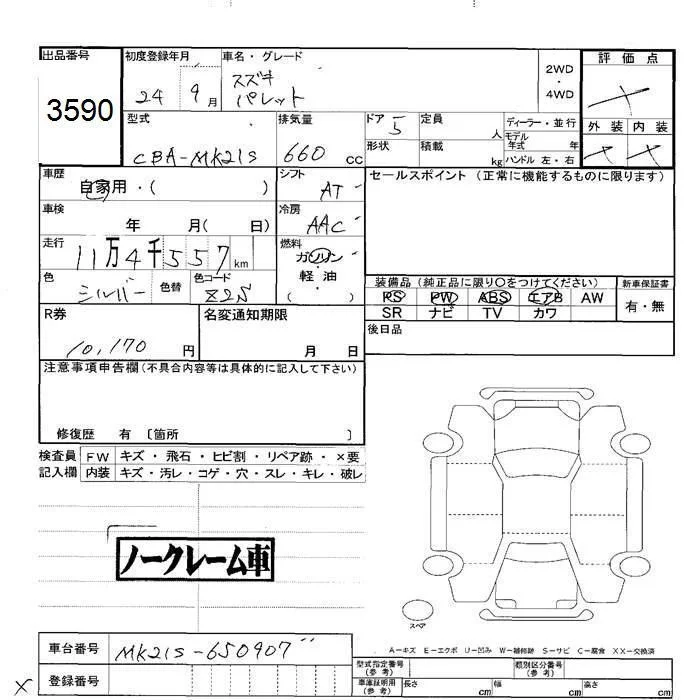 出品番号 初度登録年月 車名・グレード 評価点
3590 24 9月 スズキ パレット 2WD ・ 4WD
型式 排気量 ドア 5 定員 人 ディーラー・並行 外装 内装
CBA-MK21S 660 CC 形状 積載 kg モデル年式 年 ハンドル 左・右
車歴 シフト セールスポイント (正常に機能するものに限ります)
自家用・( ) AT
車検 冷房
年 月( 日) AAC
走行 燃料
11万4千557km ガソリン・軽油
色 色コード ( ) 装備品 (純正品に限り○をつけてください) 新車保証書
シルバー 色替 Z2S PS PW ABS エアB AW 有・無
R券 名変通知期限 SR ナビ TV カワ
10,170 円 月 日 後日品
注意事項申告欄(不具合内容等は具体的に記入して下さい)
修復歴 有 〔箇所 〕
検査員 FW キズ・飛石・ヒビ割・リペア跡・×要
記入欄 内装 キズ・汚レ・コゲ・穴・スレ・キレ・破レ
ノークレーム車
スペア
A=キズ E=エクボ U=凹み W=補修跡 S=サビ C=腐食 XX=交換済
車台番号 MK21S-650907
型式指定番号(参考) 類別区分番号(参考)
登録番号 車庫証明用(参考) 長さ cm 幅 cm 高さ cm